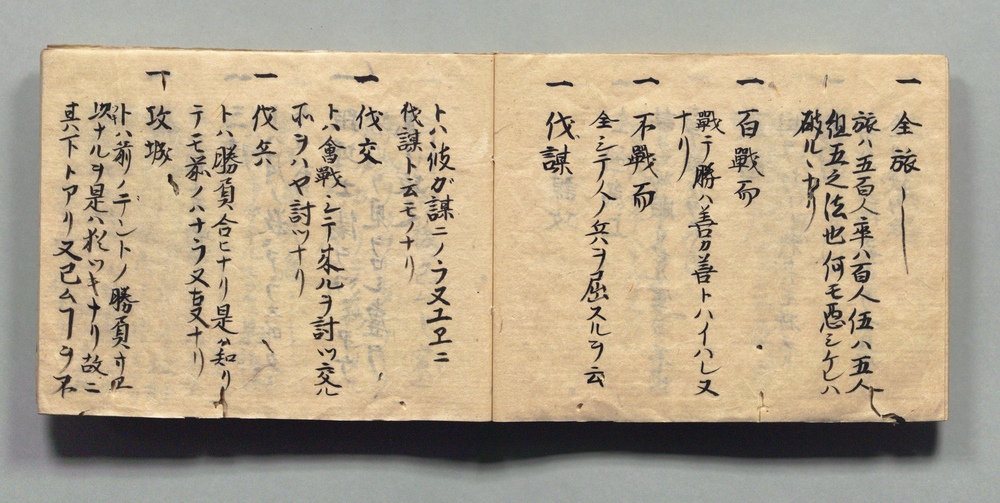 一 全旅
旅ハ五百人卒ハ百人伍ハ五人
組五之法也何モ悪シケレハ
破ルヽナリ
一 百戰而
戰テ勝ハ善ノ善トハイハレス
ナリ
一 不戰而
全シテ人ノ兵ヲ屈スルヲ云
一 伐謀
トハ彼ガ謀ニノラヌユヱニ
伐謀ト云モノナリ
一 伐交
トハ會戰シテ来ルヲ討ツ交ル
所ヲハヤ討ツナリ
一 伐兵
トハ勝負合ヒナリ是ガ知リ
テモ
一 攻城
トハ前ノ
次ナルヲ是ハ
其ハ下トアリ又已ムヿヲ不